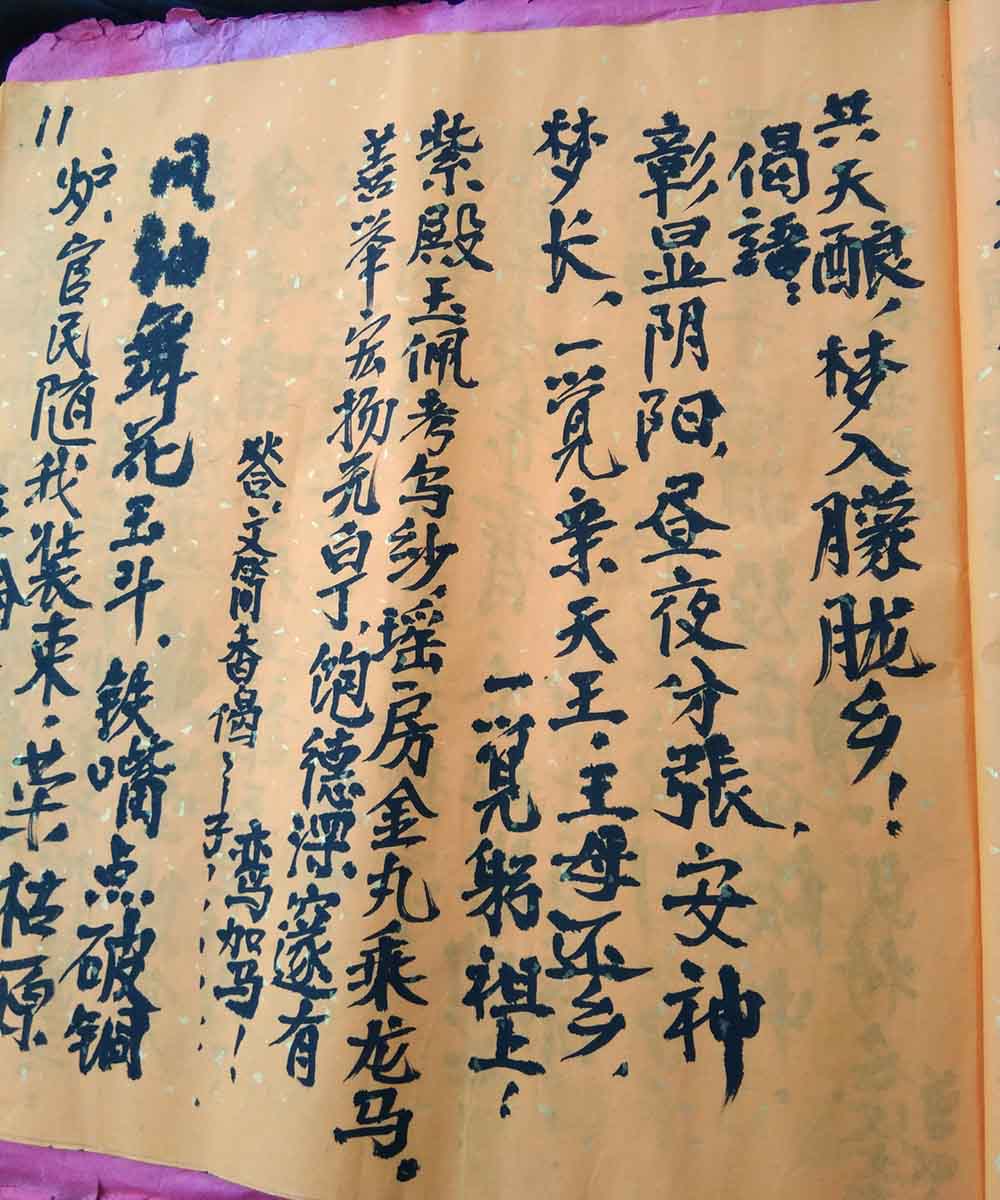 共天酿，梦入朦胧乡！
偈語：
彰显阴阳，昼夜分張，安神
梦长，一觉亲天王，王母还乡，
一覓躬祖上！
紫殿玉佩考乌纱，瑶房金丸乘龙马。
善举宏扬无白丁，饱德深邃有
鸾加马！
答，文簡香偈
舞花玉斗。铁嘴点破铜
炉，官民随我装束，荣枯
11